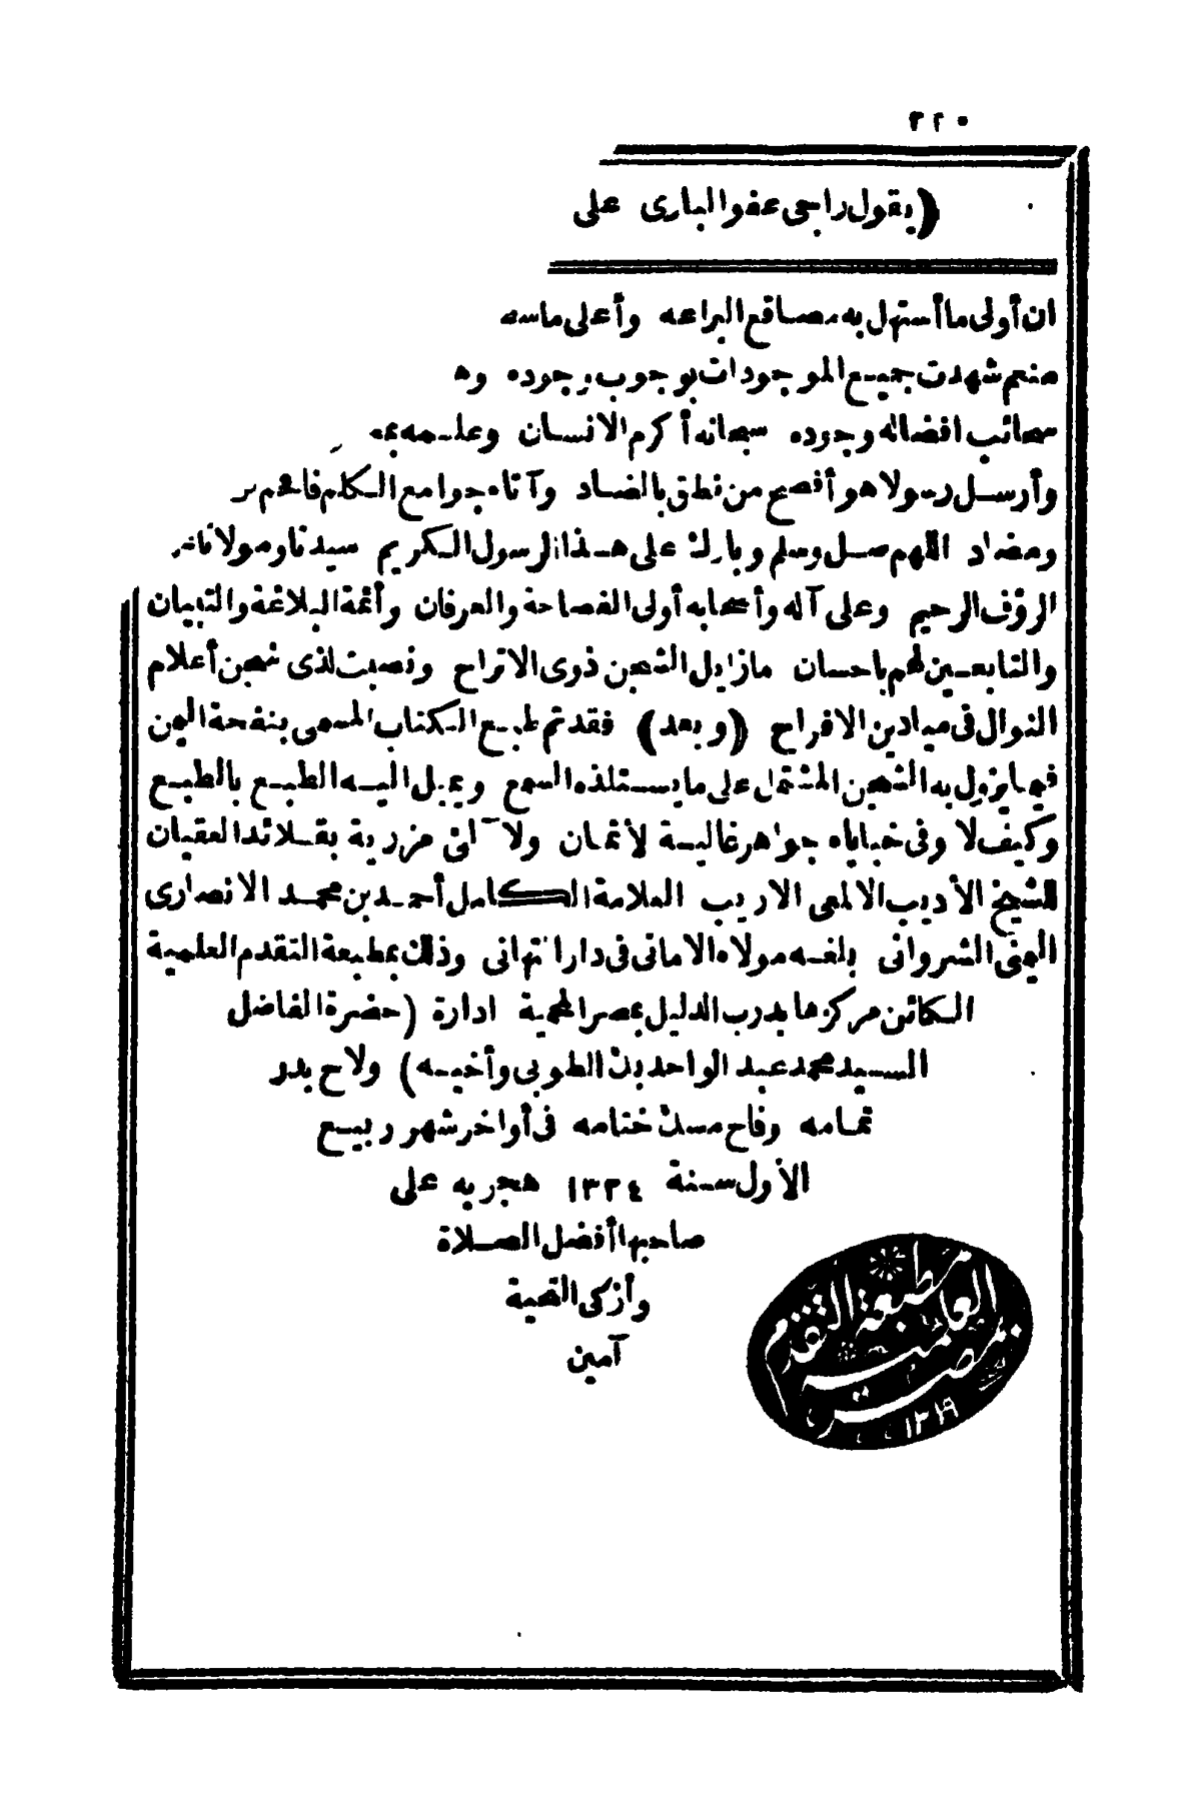 ٢٢٥
(يقول راجى عفو البارى على
ان أولى ما أستهل به مصاقع البراعه وأعلى ما
منعم شهدت جميع الموجودات بوجوب وجوده
سحائب افضاله وجوده سبحانه أكرم الانسان وعلمه
وأرسل رسولا هو أفصح من نطق بالضاد وآتاه جوامع الكلم فافحم
ومضاد اللهم صل وسلم وبارك على هذا الرسول الكريم سيدنا ومولانا
الرؤف الرحيم وعلى آله وأصحابه أولى الفصاحة والعرفان وأئمة البلاغة والتبيان
والتابعين لهم باحسان ما زايل الشجن ذوى الاتراح ونصبت لذى شجن أعلام
النوال فى ميادين الافراح (وبعد) فقد تم طبع الكتاب المسمى بنفحة اليمن
فيما يزول به الشجن المشتمل على ما يستلذه السمع ويميل اليه الطبع بالطبع
وكيف لا وفى خباياه جواهر غالية لأثمان ولآلئ مزرية بقلائد العقيان
للشيخ الأديب الالمعى الاريب العلامة الكامل أحمد بن محمد الانصارى
اليمنى الشروانى بلغه مولاه الامانى فى دار التهانى وذلك بمطبعة التقدم العلمية
الكائن مركزها بدرب الدليل بمصر المحمية ادارة (حضرة الفاضل
السيد محمد عبد الواحد بك الطوبى وأخيه) ولاح بدر
تمامه وفاح مسك ختامه فى أواخر شهر ربيع
الأول سنة ١٣٢٤ هجريه على
صاحبها أفضل الصلاة
وأزكى التحية
آمين
مطبعة التقدم
العلمية
بمصر
١٣١٩